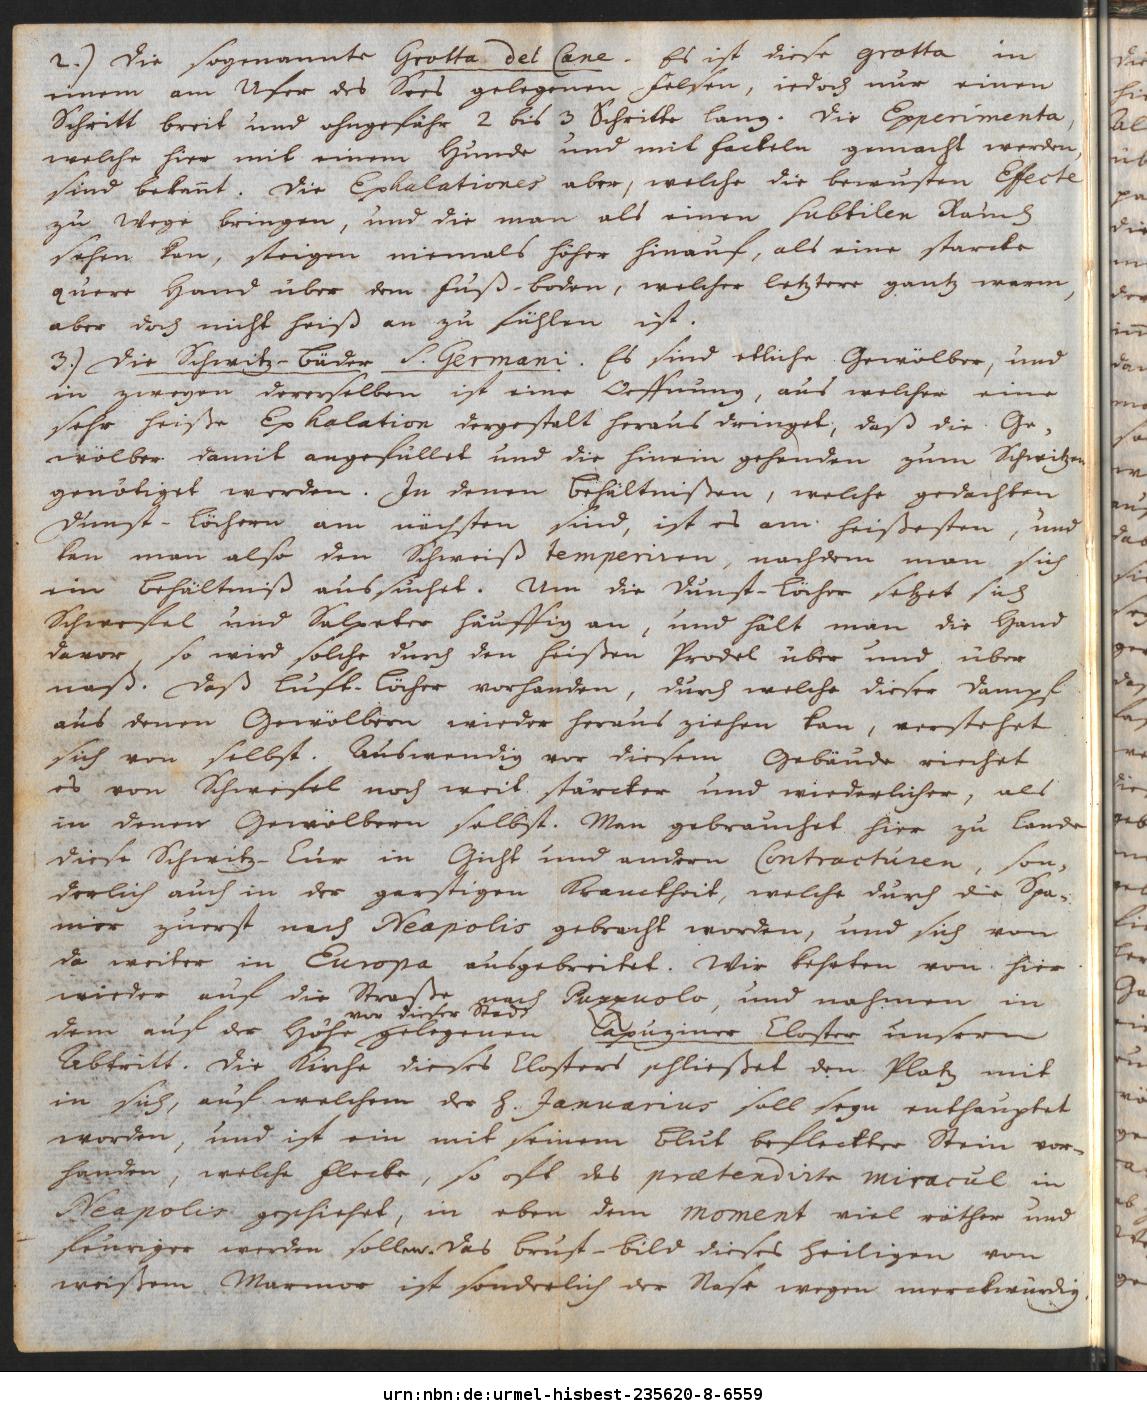 2.) Die sogenannte Grotta del Cane. Es ist diese grotta in
einem am Ufer des Sees gelegenen Felsen, iedoch nur einen
Schritt breit und ohngefähr 2 bis 3 Schritte lang. Die Experimenta,
welche hier mit einem Hunde und mit Fackeln gemacht werden,
sind bekant. Die Exhalationes aber, welche die bewusten Effecte
zu Wege bringen, und die man als einen subtilen Rauch
sehen kan, steigen niemals höher hinauf, als eine starcke
quere Hand über dem Fuß-boden, welcher letztere gantz warm,
aber doch nicht heiß an zu fühlen ist.
3.) Die Schwitz-Bäder S. Germani. Es sind etliche Gewölber, und
in zweyen dererselben ist eine Oeffnung, aus welcher eine
sehr heiße Exhalation dergestalt heraus dringet, daß die Ge-
wölber damit angefüllet und die hinein gehenden zum Schwitzen
genötiget werden. In denen Behältnißen, welche gedachten
Dunst-Löchern am nächsten sind, ist es am heißesten, und
kan man also den Schweiß temperiren, nachdem man sich
ein Behältniß aussuchet. Um die Dunst-Löcher setzet sich
Schwefel und Salpeter häuffig an, und hält man die Hand
davor, so wird solche durch den heißen Prodel über und über
naß. Daß Luft-Löcher vorhanden, durch welche dieser Dampf
aus denen Gewölbern wieder heraus ziehen kan, verstehet
sich von selbst. Auswendig vor diesem Gebäude riechet
es von Schwefel noch weit stärcker und wiederlicher, als
in denen Gewölbern selbst. Man gebrauchet hier zu Lande
diese Schwitz-Cur in Gicht und andern Contracturen, son-
derlich auch in der garstigen Kranckheit, welche durch die Spa-
nier zuerst nach Neapolis gebracht worden, und sich von
da weiter in Europa ausgebreitet. Wir kehrten von hier
wieder auf die Straße nach Puzzuolo, und nahmen in
vor dieser Stadt
dem auf der Höhe gelegenen Capuziner Closter unsern
Abtritt. Die Kirche dieses Closters schließet den Platz mit
in sich, auf welchem der h. Januarius soll seyn enthauptet
worden, und ist ein mit seinem Blut befleckter Stein vor-
handen, welche Flecke, so oft das prætendirte miracul in
Neapolis geschiehet, in eben dem moment viel röther und
feuriger werden sollen. Das Brust-bild dieses Heiligen von
weißem Marmor ist sonderlich der Nase wegen merckwürdig,
urn:nbn:de:urmel-hisbest-235620-8-6559